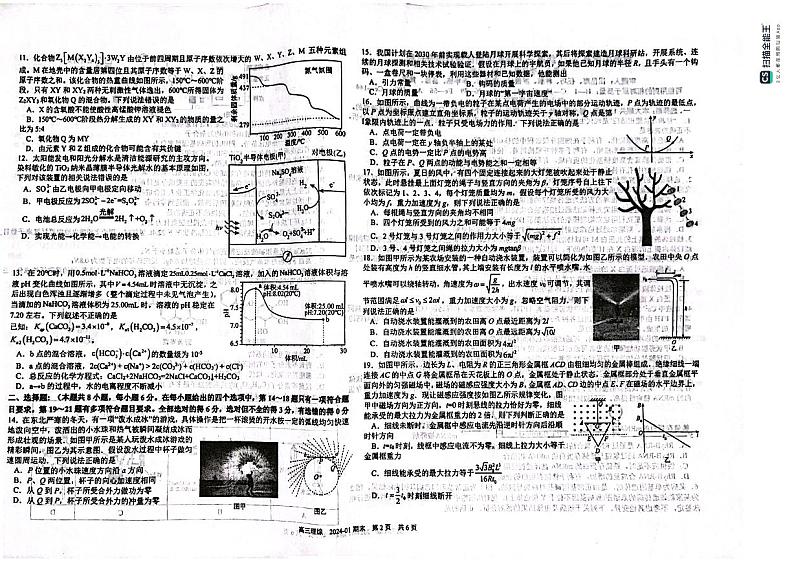 11. 化合物Z₃[M(X₂Y₄)₃]·3W₂Y 由位于前四周期且原子序数依次增大的 W、X、Y、Z、M 五种元素组
成，M 在地壳中的含量居第四位且其原子序数等于 W、X、Z 的
原子序数之和。该化合物的热重曲线如图所示，150℃~600℃阶
段，只有 XY 和 XY₂ 两种无刺激性气体逸出，600℃所得固体为
Z₂XY₃和氧化物 Q 的混合物。下列说法错误的是
A. X 的含氧酸不能使酸性高锰酸钾溶液褪色
B. 150℃~600℃阶段热分解生成的 XY 和 XY₂ 的物质的量之
比为 5:4
C. 氧化物 Q 为 MY
D. 由元素 Y 和 Z 组成的化合物可能含有共价键
剩余固体质量/g
氮气氛围
491
437
279
150 300 400 500 600
温度/℃
12. 太阳能发电和阳光分解水是清洁能源研究的主攻方向。
染料敏化的 TiO₂ 纳米晶薄膜半导体光解水的基本原理如图，
下列对该装置的相关说法错误的是
A. SO₄²⁻由乙电极向甲电极定向移动
B. 甲电极反应为2SO₄²⁻−2e⁻=S₂O₈²⁻
C. 电池总反应为2H₂O 光解 2H₂↑+O₂↑
D. 实现光能→化学能→电能的转换
TiO₂半导体电极(甲)
对电极(乙)
Na₂SO₄溶液
SO₄²⁻
S₂O₈²⁻
H₂
H⁺
O₂+SO₄²⁻+H⁺
H₂O
hν
13. 在 20℃时，用0.5mol·L⁻¹NaHCO₃溶液滴定25mL0.25mol·L⁻¹CaCl₂溶液，加入的NaHCO₃溶液体积与溶
液 pH 变化曲线如图所示，其中 V=4.54mL时溶液中无沉淀，之
后出现白色浑浊且逐渐增多（整个滴定过程中未见气泡产生），
当滴加的 NaHCO₃溶液体积为 25.00mL 时，溶液的 pH 稳定在
7.20 左右。下列叙述不正确的是
已知：Ksp(CaCO₃)=3.4×10⁻⁹，Ka₁(H₂CO₃)=4.5×10⁻⁷，
Ka₂(H₂CO₃)=4.7×10⁻¹¹。
A. b 点的混合溶液，c(HCO₃⁻)·c(Ca²⁺)的数量级为 10⁻⁵
B. a 点的混合溶液，2c(Ca²⁺)+c(Na⁺)>2c(CO₃²⁻)+c(HCO₃⁻)+c(Cl⁻)
C. 总反应的化学方程式：CaCl₂+2NaHCO₃=2NaCl+CaCO₃+H₂CO₃
D. a→b 的过程中，水的电离程度不断减小
pH
8.0
7.5
7.0
6.5
体积:4.54 mL
pH:8.02(20℃)
体积:25.00 mL
pH:7.20(20℃)
0 10 20 30
体积/mL
二、选择题：（本共 8 小题，每小题 6 分。在每小题给出的四个选项中，第 14～18 题只有一项符合题
目要求，第 19～21 题有多项符合题目要求。全部选对的得 6 分，选对但不全的得 3 分，有选错的得 0 分）
14. 在东北严寒的冬天，有一项“泼水成冰”的游戏，具体操作是把一杯滚烫的开水按一定的弧线均匀快速
地泼向空中，泼洒出的小水珠和热气被瞬间凝结成冰而
形成壮观的场景。如图甲所示是某人玩泼水成冰游戏的
精彩瞬间，图乙为其示意图。假设泼水过程中杯子做匀
速圆周运动。下列说法正确的是
A. P 位置的小水珠速度方向沿 a 方向
B. P、Q 两位置，杯子的向心加速度相同
C. 从 Q 到 P，杯子所受合外力做功为零
D. 从 Q 到 P，杯子所受合外力的冲量为零
图甲
图乙
15. 我国计划在 2030 年前实现载人登陆月球开展科学探索，其后将探索建造月球科研站，开展系统、连
续的月球探测和相关技术试验验证。假设在月球上的宇航员，如果他已知月球的半径 R，且手头有一个钩
码、一盒卷尺和一块停表，利用这些器材和已知数据，他能测出
A. 引力常量
B. 钩码的质量
C. 月球的质量
D. 月球的“第一宇宙速度”
16. 如图所示，曲线为一带负电的粒子在某点电荷产生的电场中的部分运动轨迹，P 点为轨迹的最低点，
以 P 点为坐标原点建立直角坐标系，粒子的运动轨迹关于 y 轴对称，Q 点是第一
象限内轨迹上的一点，粒子只受电场力的作用。下列说法正确的是
A. 点电荷一定带负电
B. 点电荷一定在 y 轴负半轴上的某处
C. Q 点的电势一定比 P 点的电势高
D. 粒子在 P、Q 两点的动能与电势能之和一定相等
17. 如图所示，夏日的风中，有四个固定连接起来的大灯笼被吹起来处于静止
状态，此时悬挂最上面灯笼的绳子与竖直方向的夹角为β，灯笼序号自上往下
依次标记为 1、2、3、4，每个灯笼质量均为 m，假设每个灯笼所受的风力大
小均为 f，重力加速度为 g，则下列说法正确的是
A. 每根绳与竖直方向的夹角均不相同
B. 四个灯笼所受到的风力之和可能等于 4mg
C. 2 号灯笼与 3 号灯笼之间的作用力大小等于√(mg)²+f²
D. 3 号、4 号灯笼之间绳的拉力大小为 mgtanβ
18. 如图甲所示为某农场安装的一种自动浇水装置，装置可以简化为如图乙所示的模型。农田中央 O 点
处装有高度为 h 的竖直细水管，其上端安装有长度为 l 的水平喷水嘴。水
平喷水嘴可以绕轴转动，角速度为 ω=√(g/2h)，出水速度 v₀ 可调节，其调
节范围满足 ωl≤v₀≤2ωl，重力加速度大小为 g，忽略空气阻力，则下
列说法正确的是
A. 自动浇水装置能灌溉到的农田离 O 点最近距离为 2l
B. 自动浇水装置能灌溉到的农田离 O 点最远距离为√10l
C. 自动浇水装置能灌溉到的农田面积为 4πl²
D. 自动浇水装置能灌溉到的农田面积为 6πl²
19. 如图甲所示，边长为 L、电阻为 R 的正三角形金属框 ACD 由粗细均匀的金属棒组成，绝缘细线一端
连接 AC 的中点 G 将金属框吊在天花板上的 O 点，金属框处于静止状态，金属框部分处于垂直金属框平
面向外的匀强磁场中，磁场的磁感应强度大小为 B，金属框 AD、CD 边的中点 E、F 在磁场的水平边界上，
重力加速度为 g。现让磁感应强度按如图乙所示规律变化，图
甲中磁场方向为正方向，t=0 时刻悬线的拉力恰好为零，细线
能承受的最大拉力为金属框重力的 2 倍，则下列判断正确的是
A. 细线未断时，金属框中感应电流先沿逆时针方向后沿顺
时针方向
B. t=t₀时刻，线框中感应电流不为零，细线上拉力大小等于
金属框重力
C. 细线能承受的最大拉力等于 3√3B₀²L³/16Rt₀
D. t=½t₀时刻细线断开
高三理综 2024-01 期末 第 2 页 共 6 页
CS 扫描全能王
3亿人都在用的扫描App